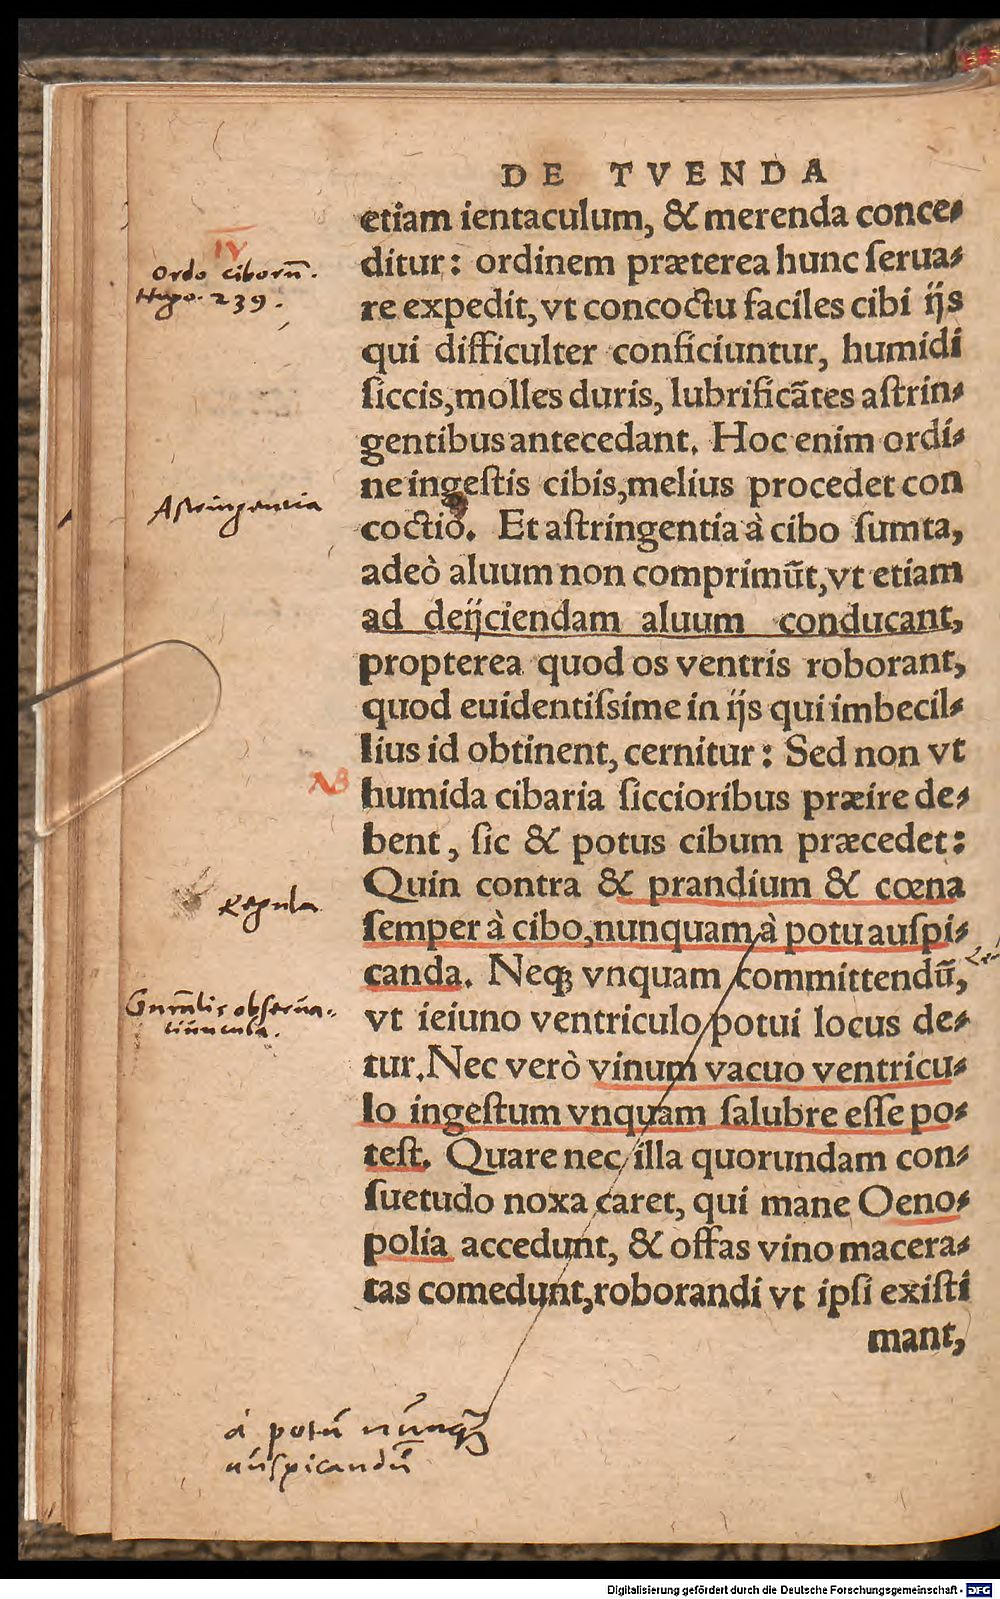 DE TVENDA
etiam ientaculum, & merenda conce⸗
IV
Ordo ciborũ.
Hypo. 239.
ditur: ordinem præterea hunc ſerua⸗
re expedit, vt concoctu faciles cibi ijs
qui difficulter conficiuntur, humidi
ſiccis, molles duris, lubrificãtes aſtrin⸗
gentibus antecedant. Hoc enim ordi⸗
ne ingeſtis cibis, melius procedet con
Astringentia
coctio. Et aſtringentia à cibo ſumta,
adeò aluum non comprimũt, vt etiam
ad deijciendam aluum conducant,
propterea quod os ventris roborant,
quod euidentiſsime in ijs qui imbecil⸗
lius id obtinent, cernitur: Sed non vt
NB
humida cibaria ſiccioribus præire de⸗
bent, ſic & potus cibum præcedet:
Quin contra & prandium & cœna
Regula
ſemper à cibo, nunquam à potu auſpi⸗
canda. Neq; vnquam committendũ,
Gñralis obserua-
tiuncula.
vt ieiuno ventriculo potui locus de⸗
tur. Nec verò vinum vacuo ventricu⸗
lo ingeſtum vnquam ſalubre eſſe po⸗
teſt. Quare nec illa quorundam con⸗
ſuetudo noxa caret, qui mane Oeno⸗
polia accedunt, & offas vino macera⸗
tas comedunt, roborandi vt ipſi exiſti
mant,
à potu nunq̃
auspicandũ
Digitalisierung gefördert durch die Deutsche Forschungsgemeinschaft - DFG